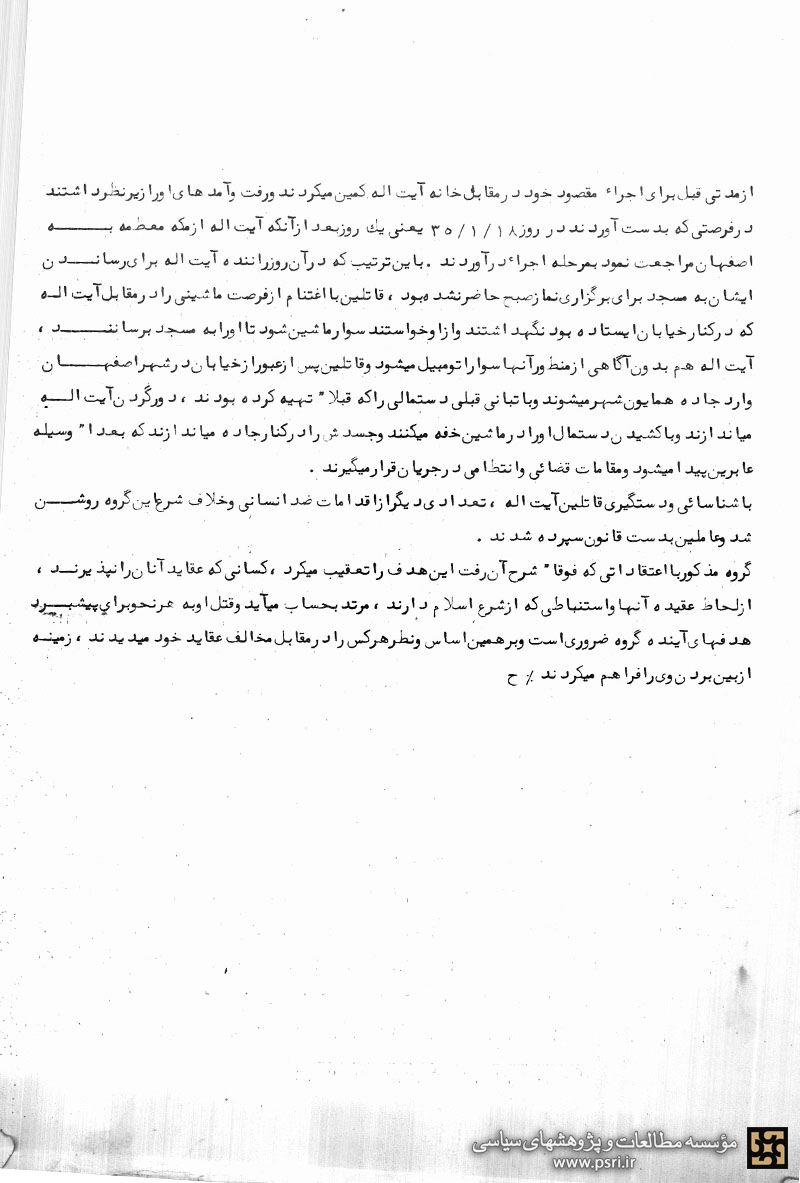 ازمدتی قبل برای اجراء مقصود خود در مقابل خانه آیت اله کمین میکردند ورفت وآمدهای او را زیر نظر داشتند
درفرصتی که بدست آوردند در روز ۳۵/۱/۱۸ یعنی یك روز بعد ازآنکه آیت اله ازمکه معظمه بـــــه
اصفهان مراجعت نمود بمرحله اجراء درآوردند . باین ترتیب که درآن روز راننده آیت اله برای رساندن
ایشان به مسجد برای برگزاری نماز صبح حاضر نشده بود ، قاتلین با اغتنام ازفرصت ماشینی را در مقابل آیت الـه
که در کنار خیابان ایستاده بود نگهداشتند وازاو خواستند سوار ماشین شود تا اورا به مسجد برسانند ،
آیت اله هم بدون آگاهی ازمنظور آنها سوار اتومبیل میشود وقاتلین پس ازعبور از خیابان در شهر اصفهـــان
وارد جاده همایون شهر میشوند وبا تبانی قبلی دستمالی راکه قبلا" تهیه کرده بودند ، دورگردن آیت الــه
میاندازند وباکشیدن دستمال اورا در ماشین خفه میکنند وجسدش را در کنار جاده میاندازند که بعدا" وسیله
عابرین پیدا میشود ومقامات قضائی وانتظامی در جریان قرار میگیرند .
با شناسائی ودستگیری قاتلین آیت اله ، تعدادی دیگر از اقدامات ضد انسانی وخلاف شرع این گروه روشـــن
شد وعاملین بدست قانون سپرده شدند .
گروه مذکور با اعتقاداتی که فوقا" شرح آن رفت این هدف را تعقیب میکرد ، کسانی که عقاید آنان را نپذیرند ،
ازلحاظ عقیده آنها واستنباطی که ازشرع اسلام دارند ، مرتد بحساب میآید وقتل او به هر نحو برای پیشبــرد
هدفهای آینده گروه ضروری است وبر همین اساس ونظر هرکس را در مقابل مخالف عقاید خود میدیدند ، زمینـه
ازبین بردن وی را فراهم میکردند ٪ ح
مؤسسه مطالعات و پژوهشهای سیاسی
www.psri.ir